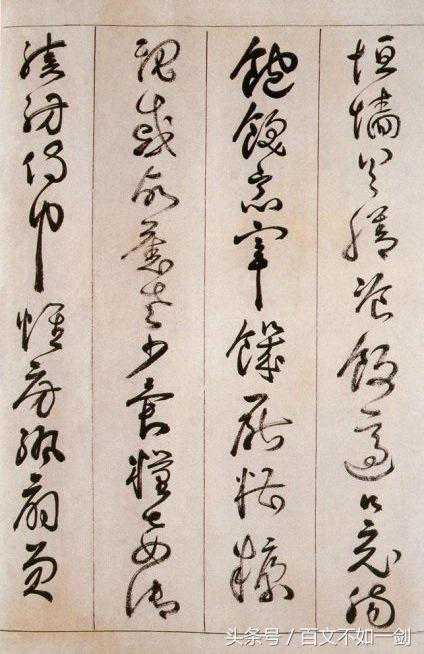 垣墻具膳飡飯適口充腸
飽飫烹宰饑厭糟糠
親戚故舊老少異糧妾御
績紡侍巾帷房紈扇員
头条号 / 百文不如一剑